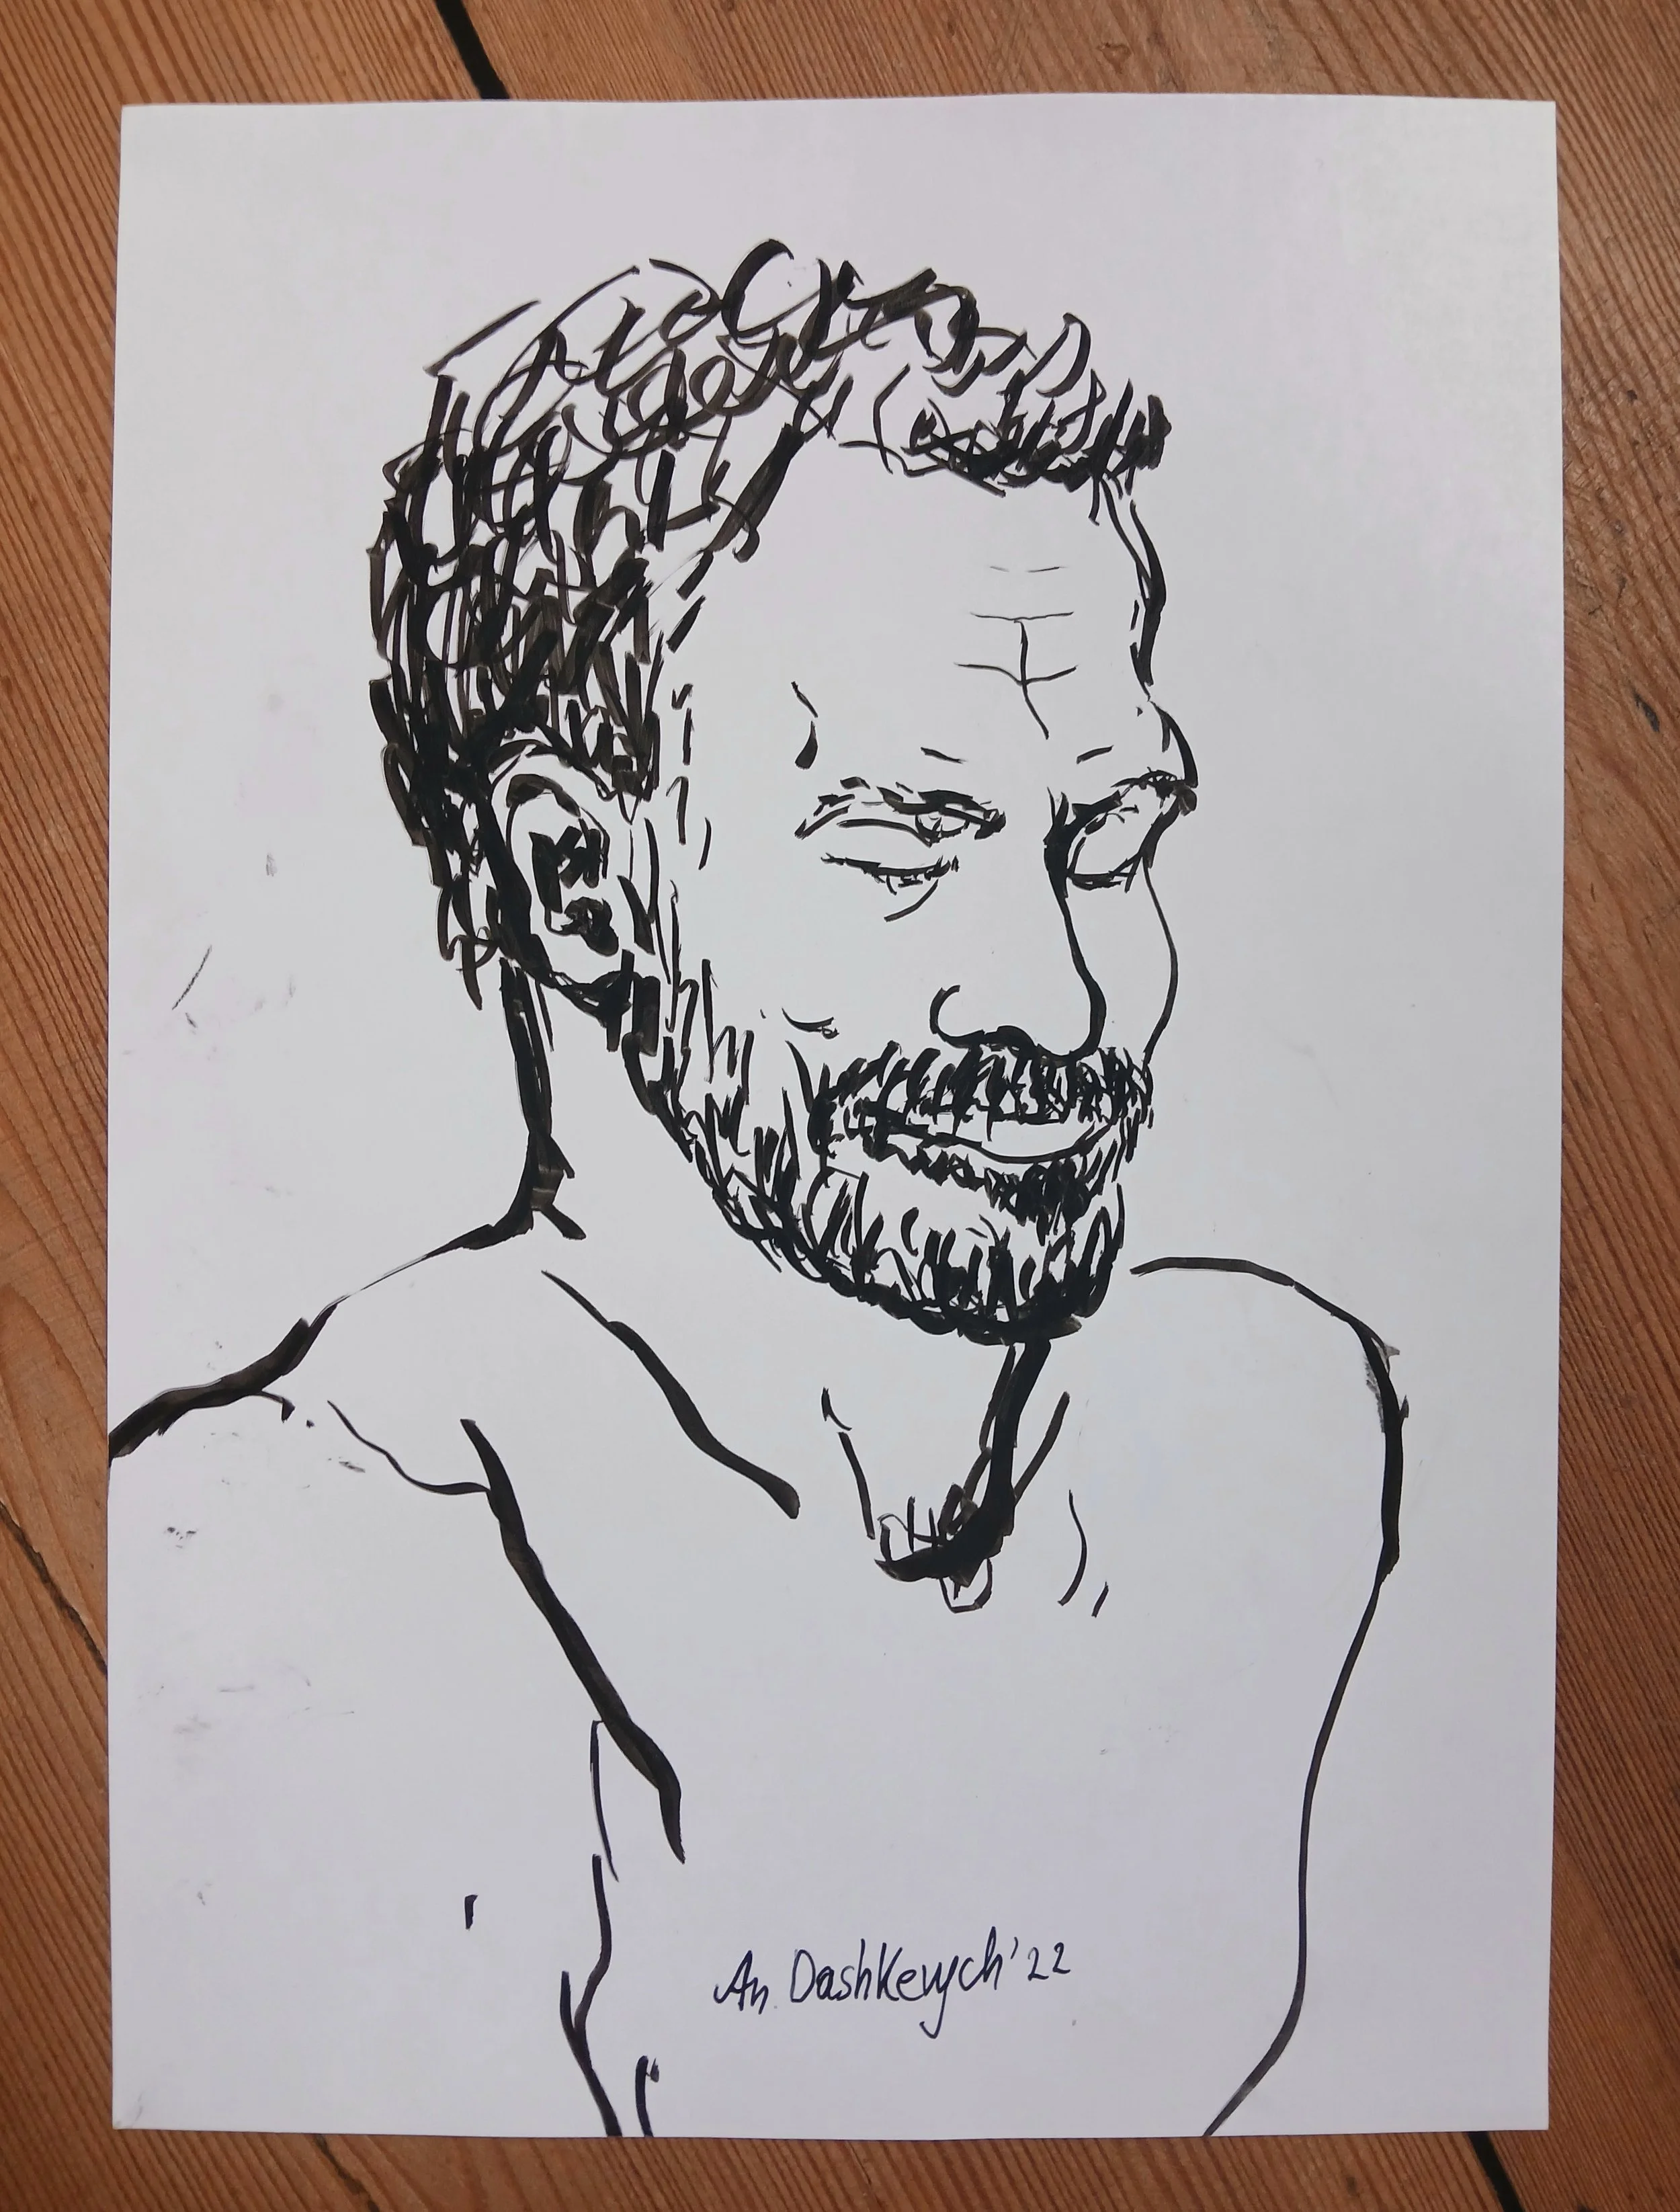 An. Dashkevych '22